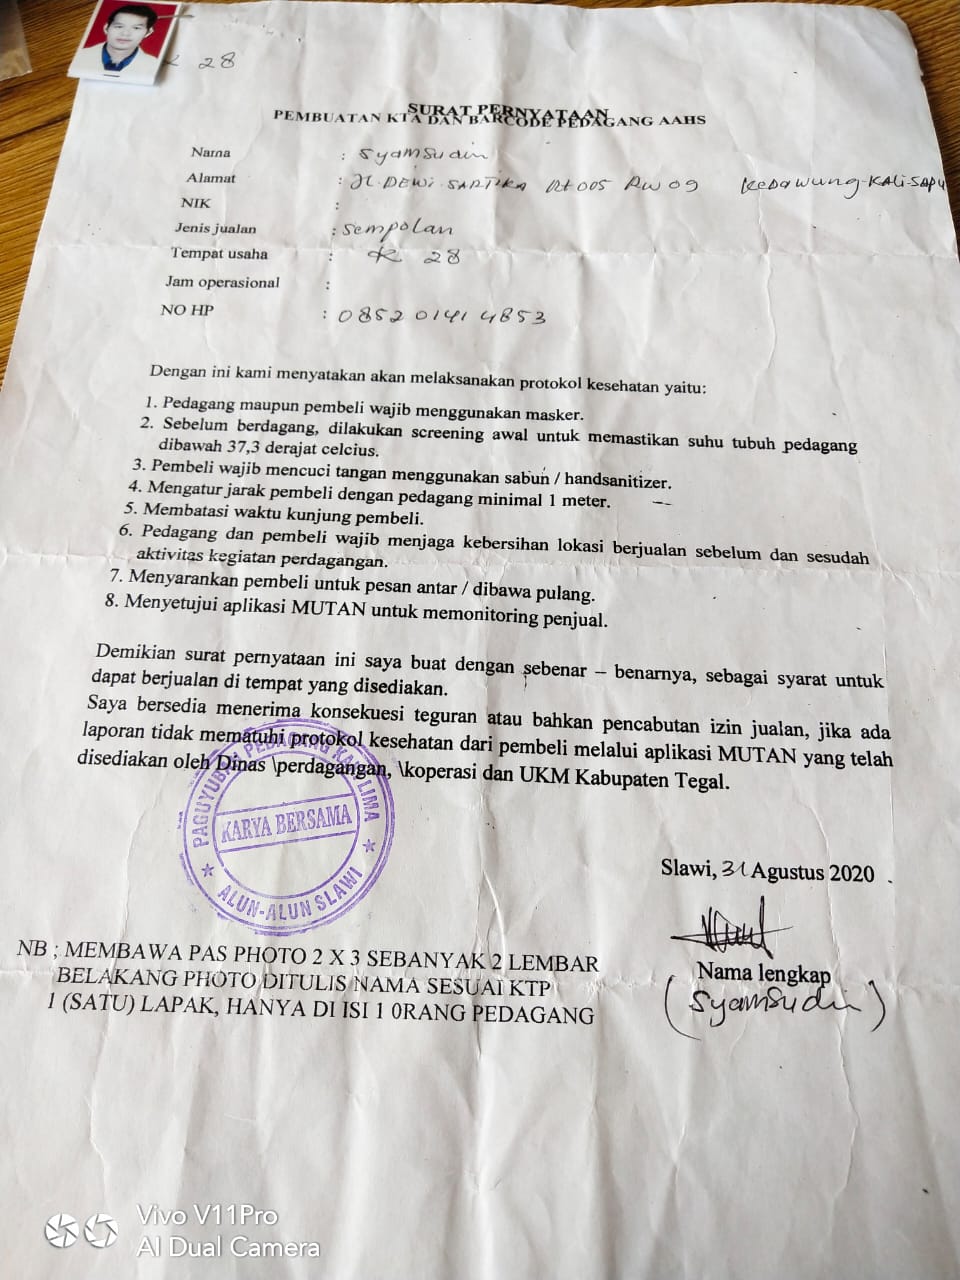 K 28
SURAT PERNYATAAN
PEMBUATAN KTA DAN BARCODE PEDAGANG AAHS
Nama : Syamsudin
Alamat : Jl. DEWI SARTIKA Rt 005 RW 09 KEDAWUNG-KALI-SAPU
NIK :
Jenis jualan : Sempolan
Tempat usaha : K 28
Jam operasional :
NO HP : 085201414853
Dengan ini kami menyatakan akan melaksanakan protokol kesehatan yaitu:
1. Pedagang maupun pembeli wajib menggunakan masker.
2. Sebelum berdagang, dilakukan screening awal untuk memastikan suhu tubuh pedagang
dibawah 37,3 derajat celcius.
3. Pembeli wajib mencuci tangan menggunakan sabun / handsanitizer.
4. Mengatur jarak pembeli dengan pedagang minimal 1 meter.
5. Membatasi waktu kunjung pembeli.
6. Pedagang dan pembeli wajib menjaga kebersihan lokasi berjualan sebelum dan sesudah
aktivitas kegiatan perdagangan.
7. Menyarankan pembeli untuk pesan antar / dibawa pulang.
8. Menyetujui aplikasi MUTAN untuk memonitoring penjual.
Demikian surat pernyataan ini saya buat dengan sebenar – benarnya, sebagai syarat untuk
dapat berjualan di tempat yang disediakan.
Saya bersedia menerima konsekuesi teguran atau bahkan pencabutan izin jualan, jika ada
laporan tidak mematuhi protokol kesehatan dari pembeli melalui aplikasi MUTAN yang telah
disediakan oleh Dinas \perdagangan, \koperasi dan UKM Kabupaten Tegal.
PAGUYUBAN PEDAGANG KAKI LIMA
KARYA BERSAMA
ALUN-ALUN SLAWI
Slawi, 31 Agustus 2020
Nama lengkap
(Syamsudin)
NB ; MEMBAWA PAS PHOTO 2 X 3 SEBANYAK 2 LEMBAR
BELAKANG PHOTO DITULIS NAMA SESUAI KTP
1 (SATU) LAPAK, HANYA DI ISI 1 0RANG PEDAGANG
Vivo V11Pro
AI Dual Camera